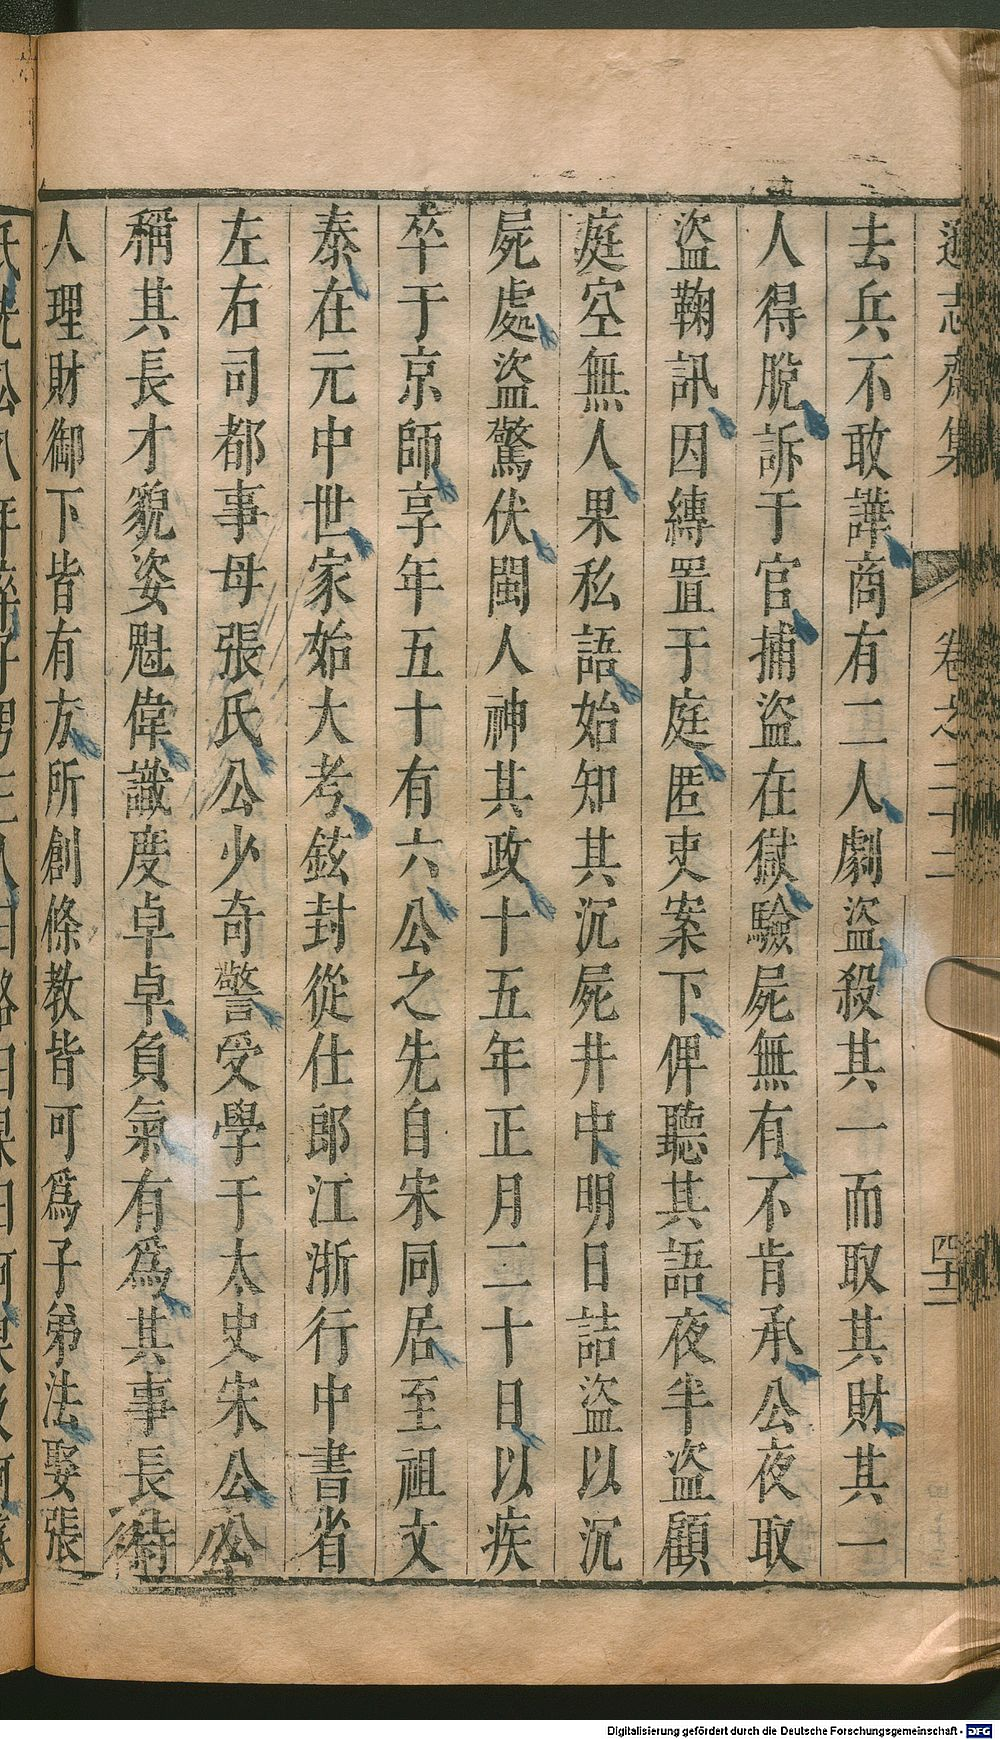 遜志齋集 卷之二十二 四十二
去兵不敢譁商有二人劇盜殺其一而取其財其一
人得脫訴于官捕盜在獄驗屍無有不肯承公夜取
盜鞠訊因縛置于庭匿吏案下俾聽其語夜半盜顧
庭空無人果私語始知其沉屍井中明日詰盜以沉
屍處盜驚伏閩人神其政十五年正月二十日以疾
卒于京師享年五十有六公之先自宋同居至祖文
泰在元中世家始大考鉉封從仕郎江浙行中書省
左右司都事母張氏公少奇警受學于太史宋公公
稱其長才貌姿魁偉識度卓卓負氣有爲其事長待
人理財御下皆有方所創條教皆可爲子弟法娶張
Digitalisierung gefördert durch die Deutsche Forschungsgemeinschaft - DFG